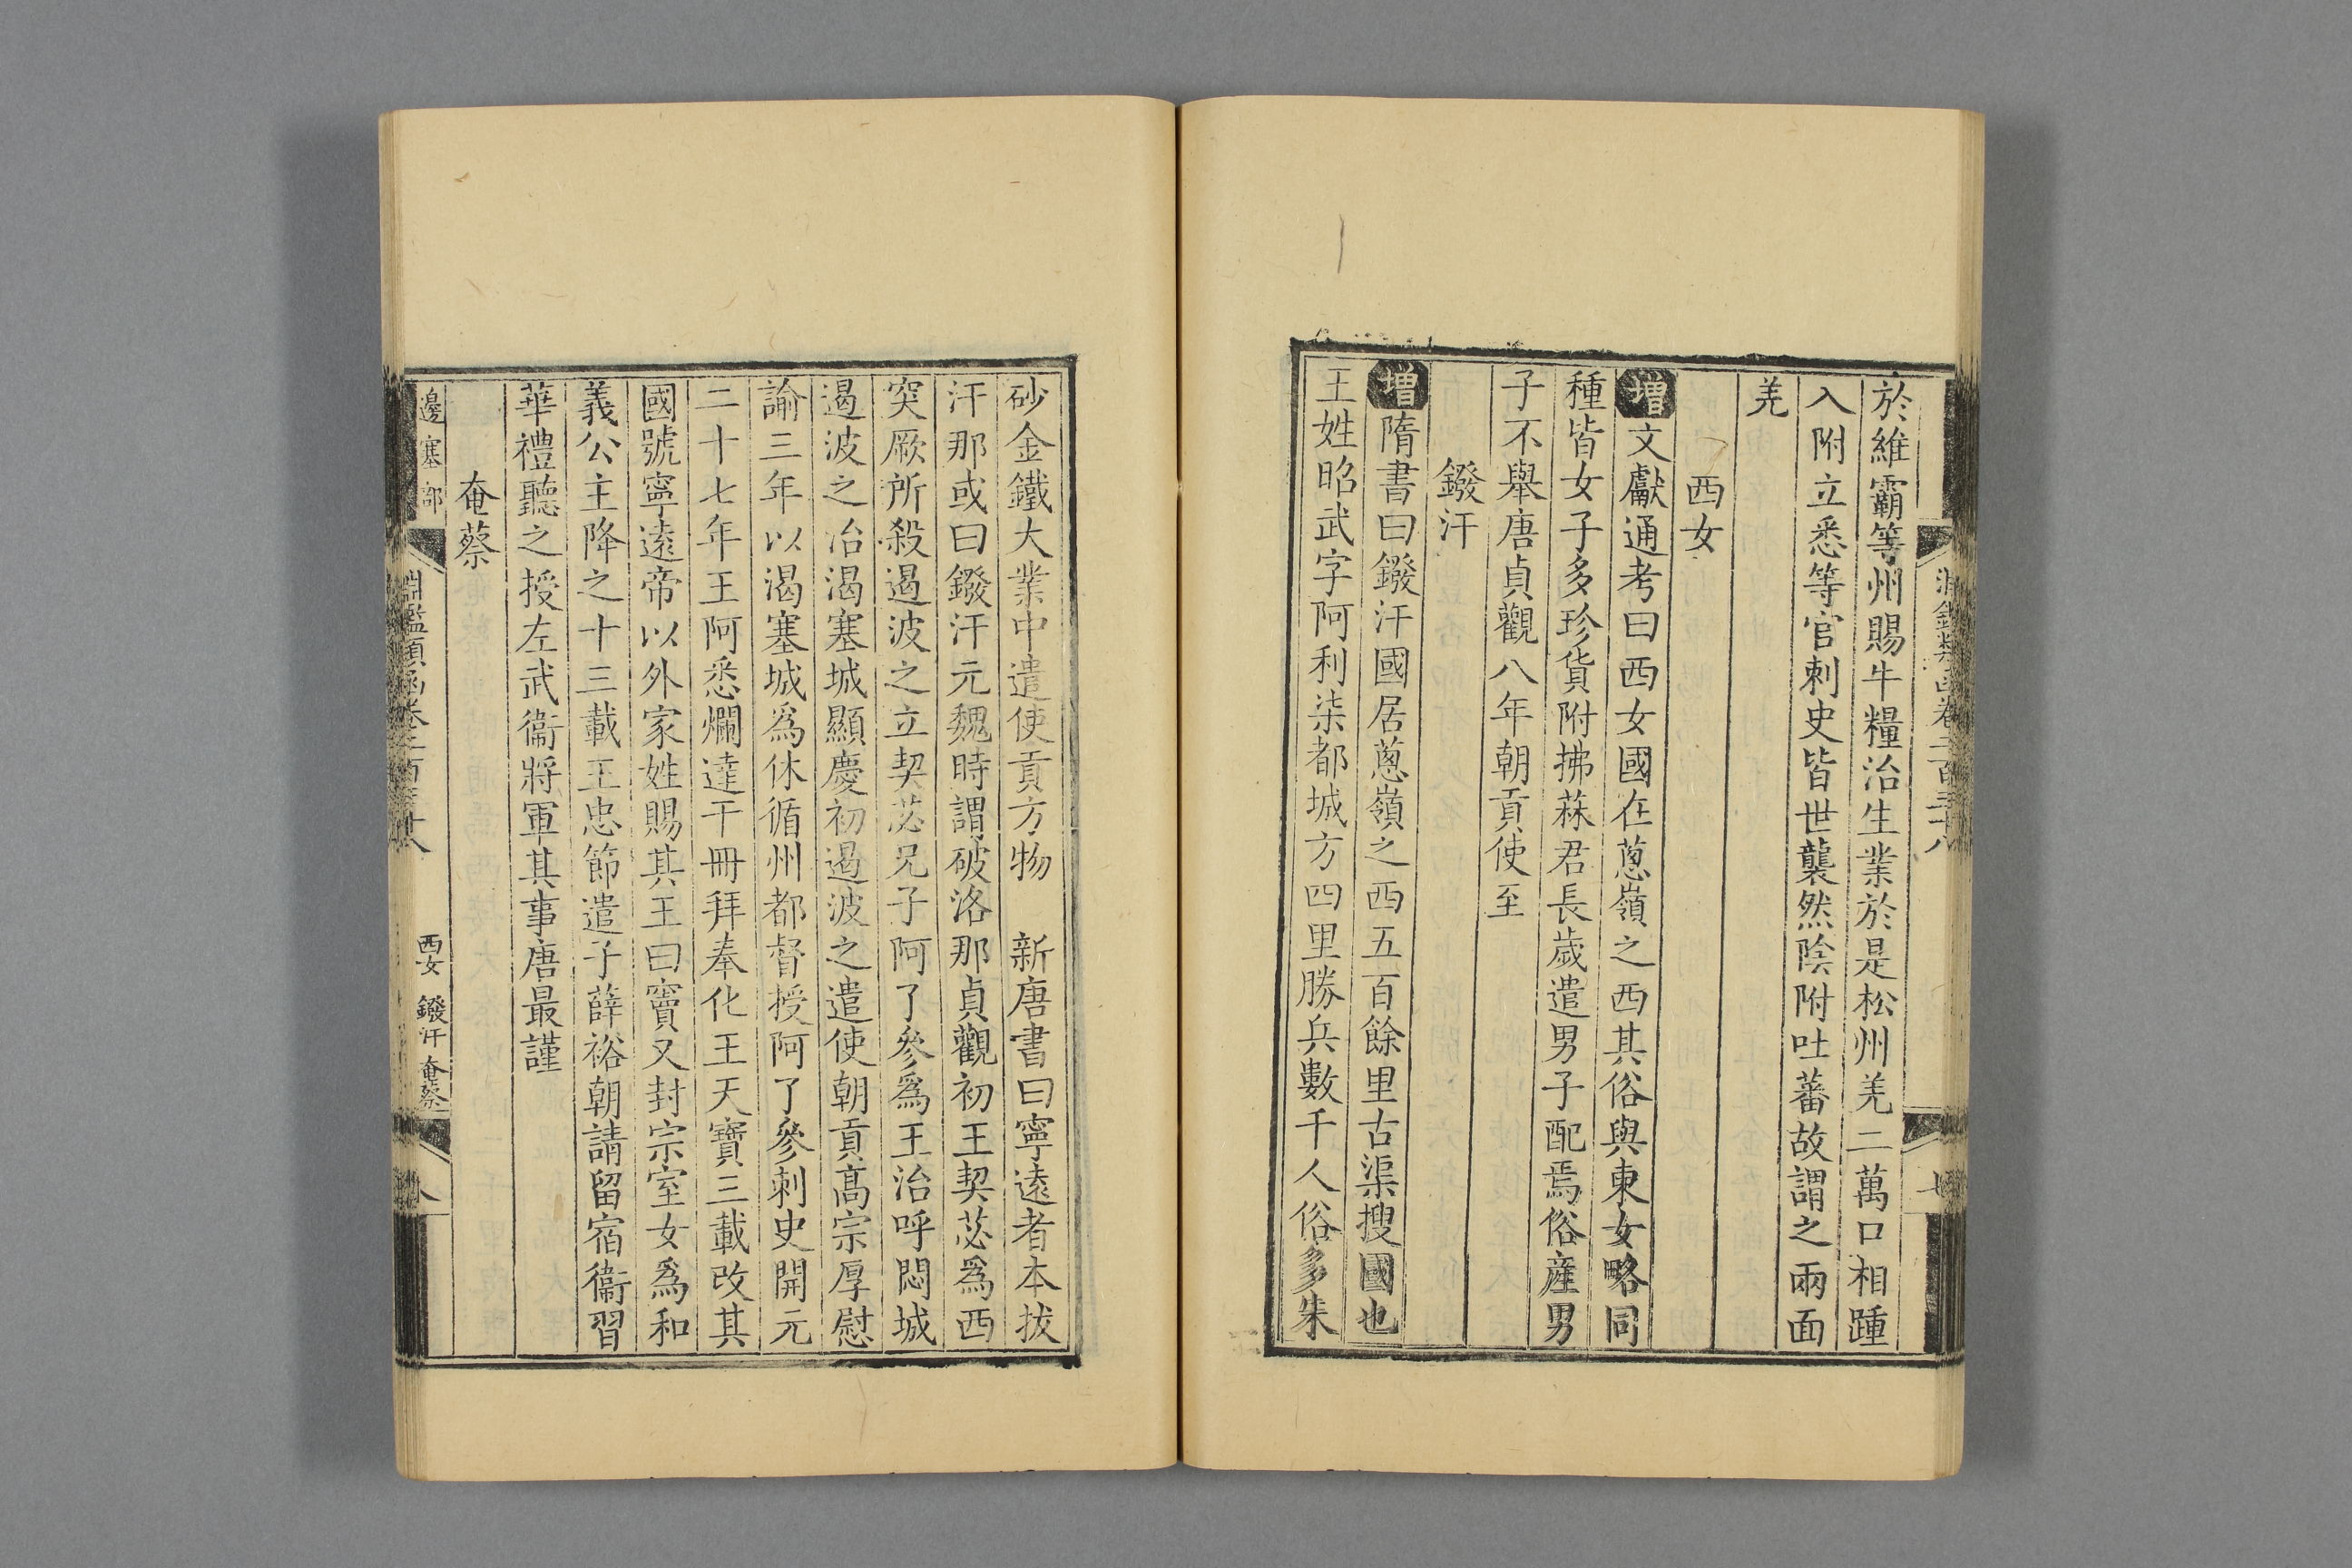 於維霸等州賜牛糧治生業於是松州羌二萬口相踵
入附立悉等官刺史皆世襲然陰附吐蕃故謂之兩面
羌
西女
增文獻通考曰西女國在蔥嶺之西其俗與東女略同
種皆女子多珍貨附拂菻君長歲遣男子配焉俗產男
子不舉唐貞觀八年朝貢使至
鏺汗
增隋書曰鏺汗國居蔥嶺之西五百餘里古渠搜國也
王姓昭武字阿利柒都城方四里勝兵數千人俗多朱
砂金鐵大業中遣使貢方物　新唐書曰寧遠者本拔
汗那或曰鏺汗元魏時謂破洛那貞觀初王契苾為西
突厥所殺遏波之立契苾兄子阿了參為王治呼悶城
遏波之治渴塞城顯慶初遏波之遣使朝貢高宗厚慰
諭三年以渴塞城為休循州都督授阿了參刺史開元
二十七年王阿悉爛達干冊拜奉化王天寶三載改其
國號寧遠帝以外家姓賜其王曰竇又封宗室女為和
義公主降之十三載王忠節遣子薛裕朝請留宿衞習
華禮聽之授左武衞將軍其事唐最謹
奄蔡
邊塞部
淵鑑類函卷二百三十八
西女 鏺汗 奄蔡
八